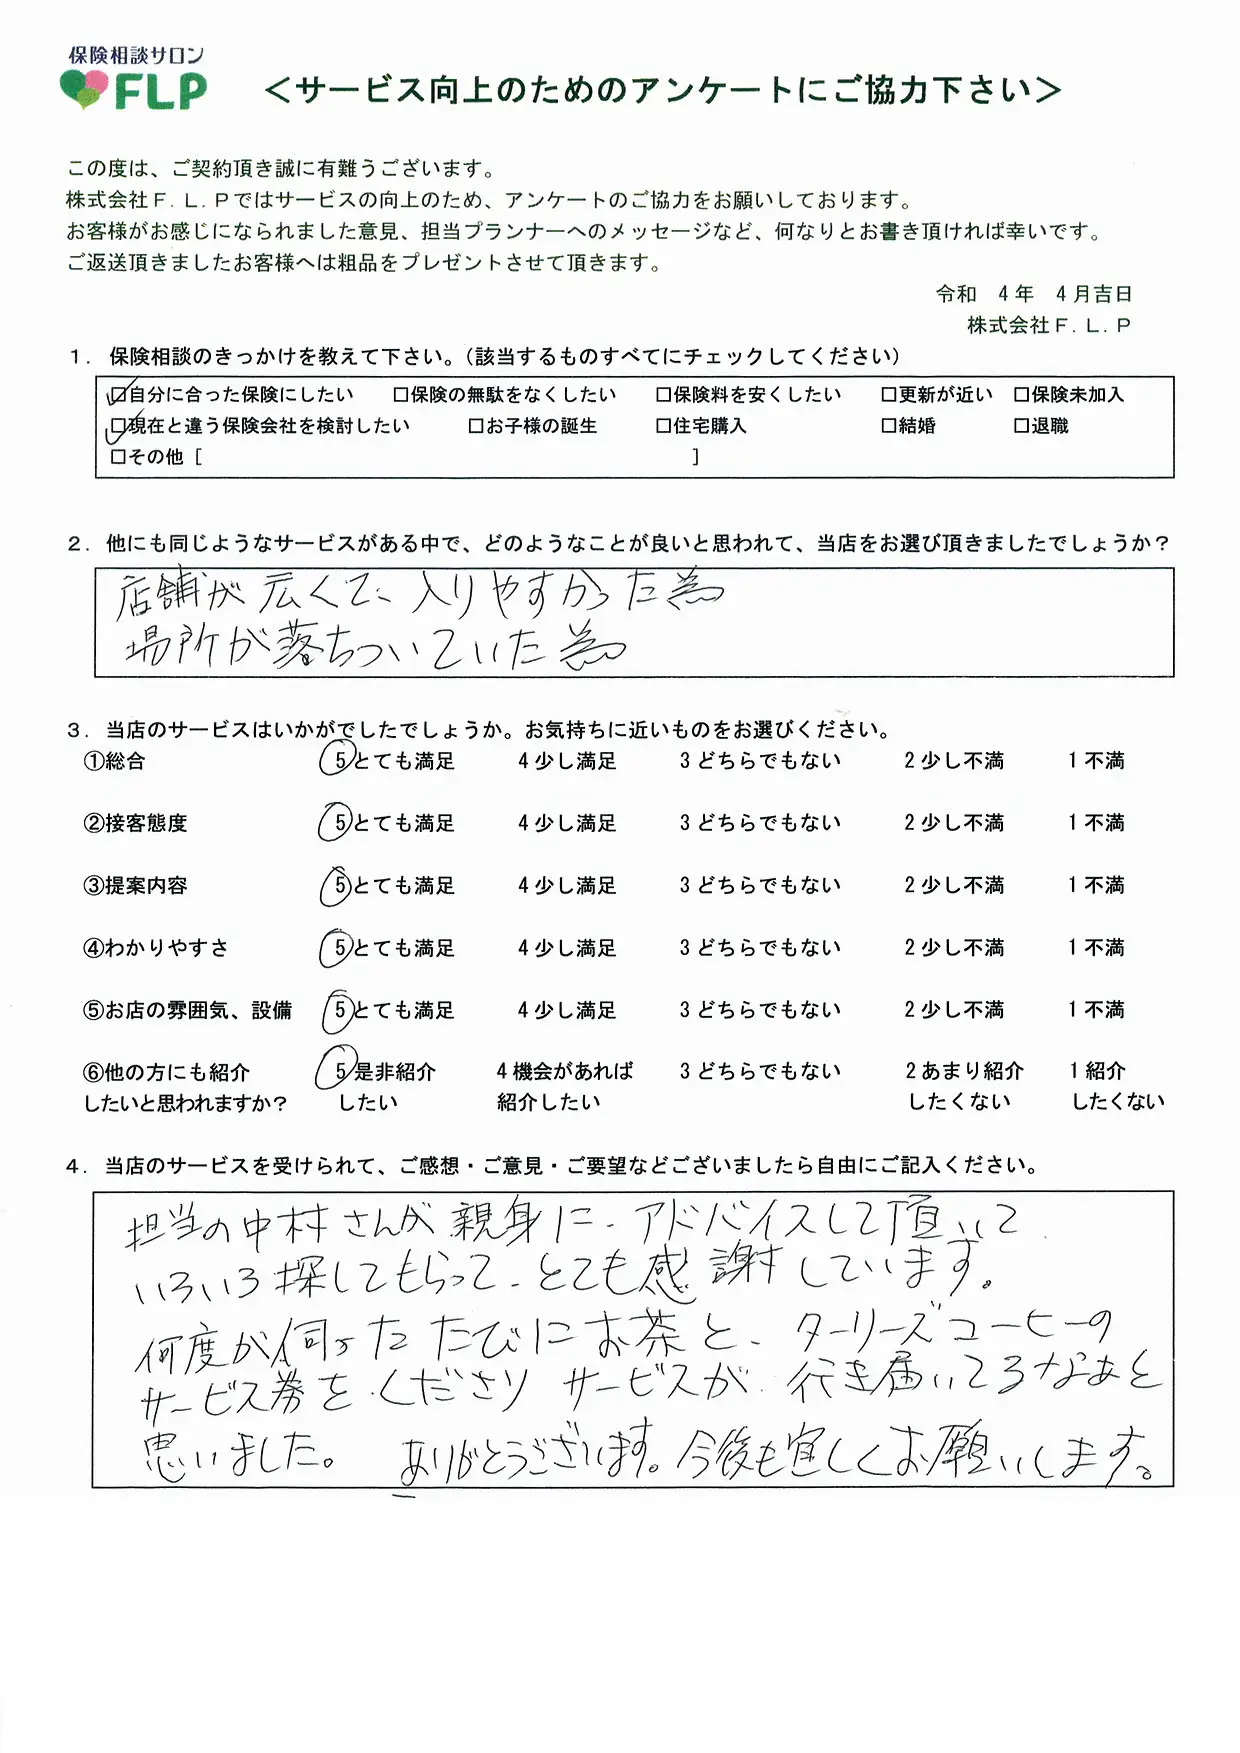 保険相談サロン
FLP
＜サービス向上のためのアンケートにご協力下さい＞
この度は、ご契約頂き誠に有難うございます。
株式会社Ｆ．Ｌ．Ｐではサービスの向上のため、アンケートのご協力をお願いしております。
お客様がお感じになられました意見、担当プランナーへのメッセージなど、何なりとお書き頂ければ幸いです。
ご返送頂きましたお客様へは粗品をプレゼントさせて頂きます。
令和　4年　4月吉日
株式会社Ｆ．Ｌ．Ｐ
１．保険相談のきっかけを教えて下さい。（該当するものすべてにチェックしてください）
☑自分に合った保険にしたい　□保険の無駄をなくしたい　□保険料を安くしたい　□更新が近い　□保険未加入
☑現在と違う保険会社を検討したい　□お子様の誕生　□住宅購入　□結婚　□退職
□その他［　　　　　］
２．他にも同じようなサービスがある中で、どのようなことが良いと思われて、当店をお選び頂きましたでしょうか？
店舗が広くて、入りやすかった為
場所が落ちついていた為
３．当店のサービスはいかがでしたでしょうか。お気持ちに近いものをお選びください。
①総合　5とても満足　4少し満足　3どちらでもない　2少し不満　1不満
②接客態度　5とても満足　4少し満足　3どちらでもない　2少し不満　1不満
③提案内容　5とても満足　4少し満足　3どちらでもない　2少し不満　1不満
④わかりやすさ　5とても満足　4少し満足　3どちらでもない　2少し不満　1不満
⑤お店の雰囲気、設備　5とても満足　4少し満足　3どちらでもない　2少し不満　1不満
⑥他の方にも紹介　5是非紹介　4機会があれば　3どちらでもない　2あまり紹介　1紹介
したいと思われますか？　したい　紹介したい　したくない　したくない
４．当店のサービスを受けられて、ご感想・ご意見・ご要望などございましたら自由にご記入ください。
担当の中村さんが親身に、アドバイスして頂いて
いろいろ探してもらって、とても感謝しています。
何度か伺ったたびにお茶と、タリーズコーヒーの
サービス券をくださり サービスが行き届いてるなぁと
思いました。 ありがとうございます。今後も宜しくお願いします。